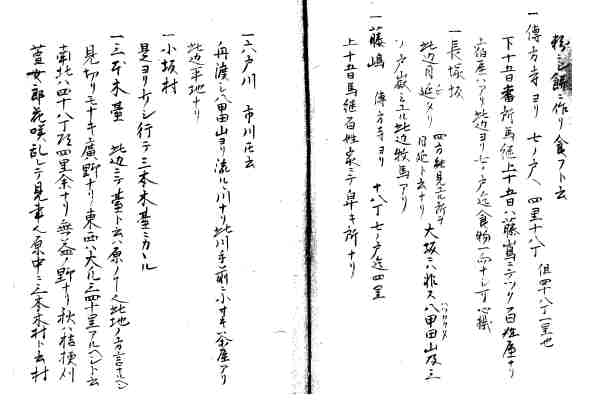 粉ニシ餅ニ作リ食フト云
一傳方寺ヨリ 七ノ戸ヘ 四里十八丁 但四十八丁一里也
下十五日番所馬継上十五日ハ藤嶌ニテツク百姓屋ナリ
宿屋ハアリ此辺ヨリ七ノ戸迄食物一向ナシ可心懸
一長塚坂 四方能見エル所ヲ
此辺目延シト云ナリ 大坂ニハ非ス八甲田山及三
ノ戸嶽ミエル此辺牧馬アリ
一藤嶋 傳方寺ヨリ 十八丁七ノ戸迄四里
上十五日馬継百姓家ニテ早キ所ナリ
一六戸川 市川トモ云
舟渡シ八甲田山ヨリ流ルヽ川ナリ此川手前ニ小サキ茶屋アリ
此辺平地ナリ
一小坂村
是ヨリ少シ行テ三本木䑓ニカヽル
一三本木䑓 此辺ニテ䑓ト云ハ原ノ
見切リモナキ廣野ナリ東西ハ大凡三四十里アルヘシト云
南北ハ四十八丁 四里余ナリ無益ノ野ナリ秋ハ桔梗刈
萱女郎花咲乱レテ見事 原中ニ三本木村ト云村